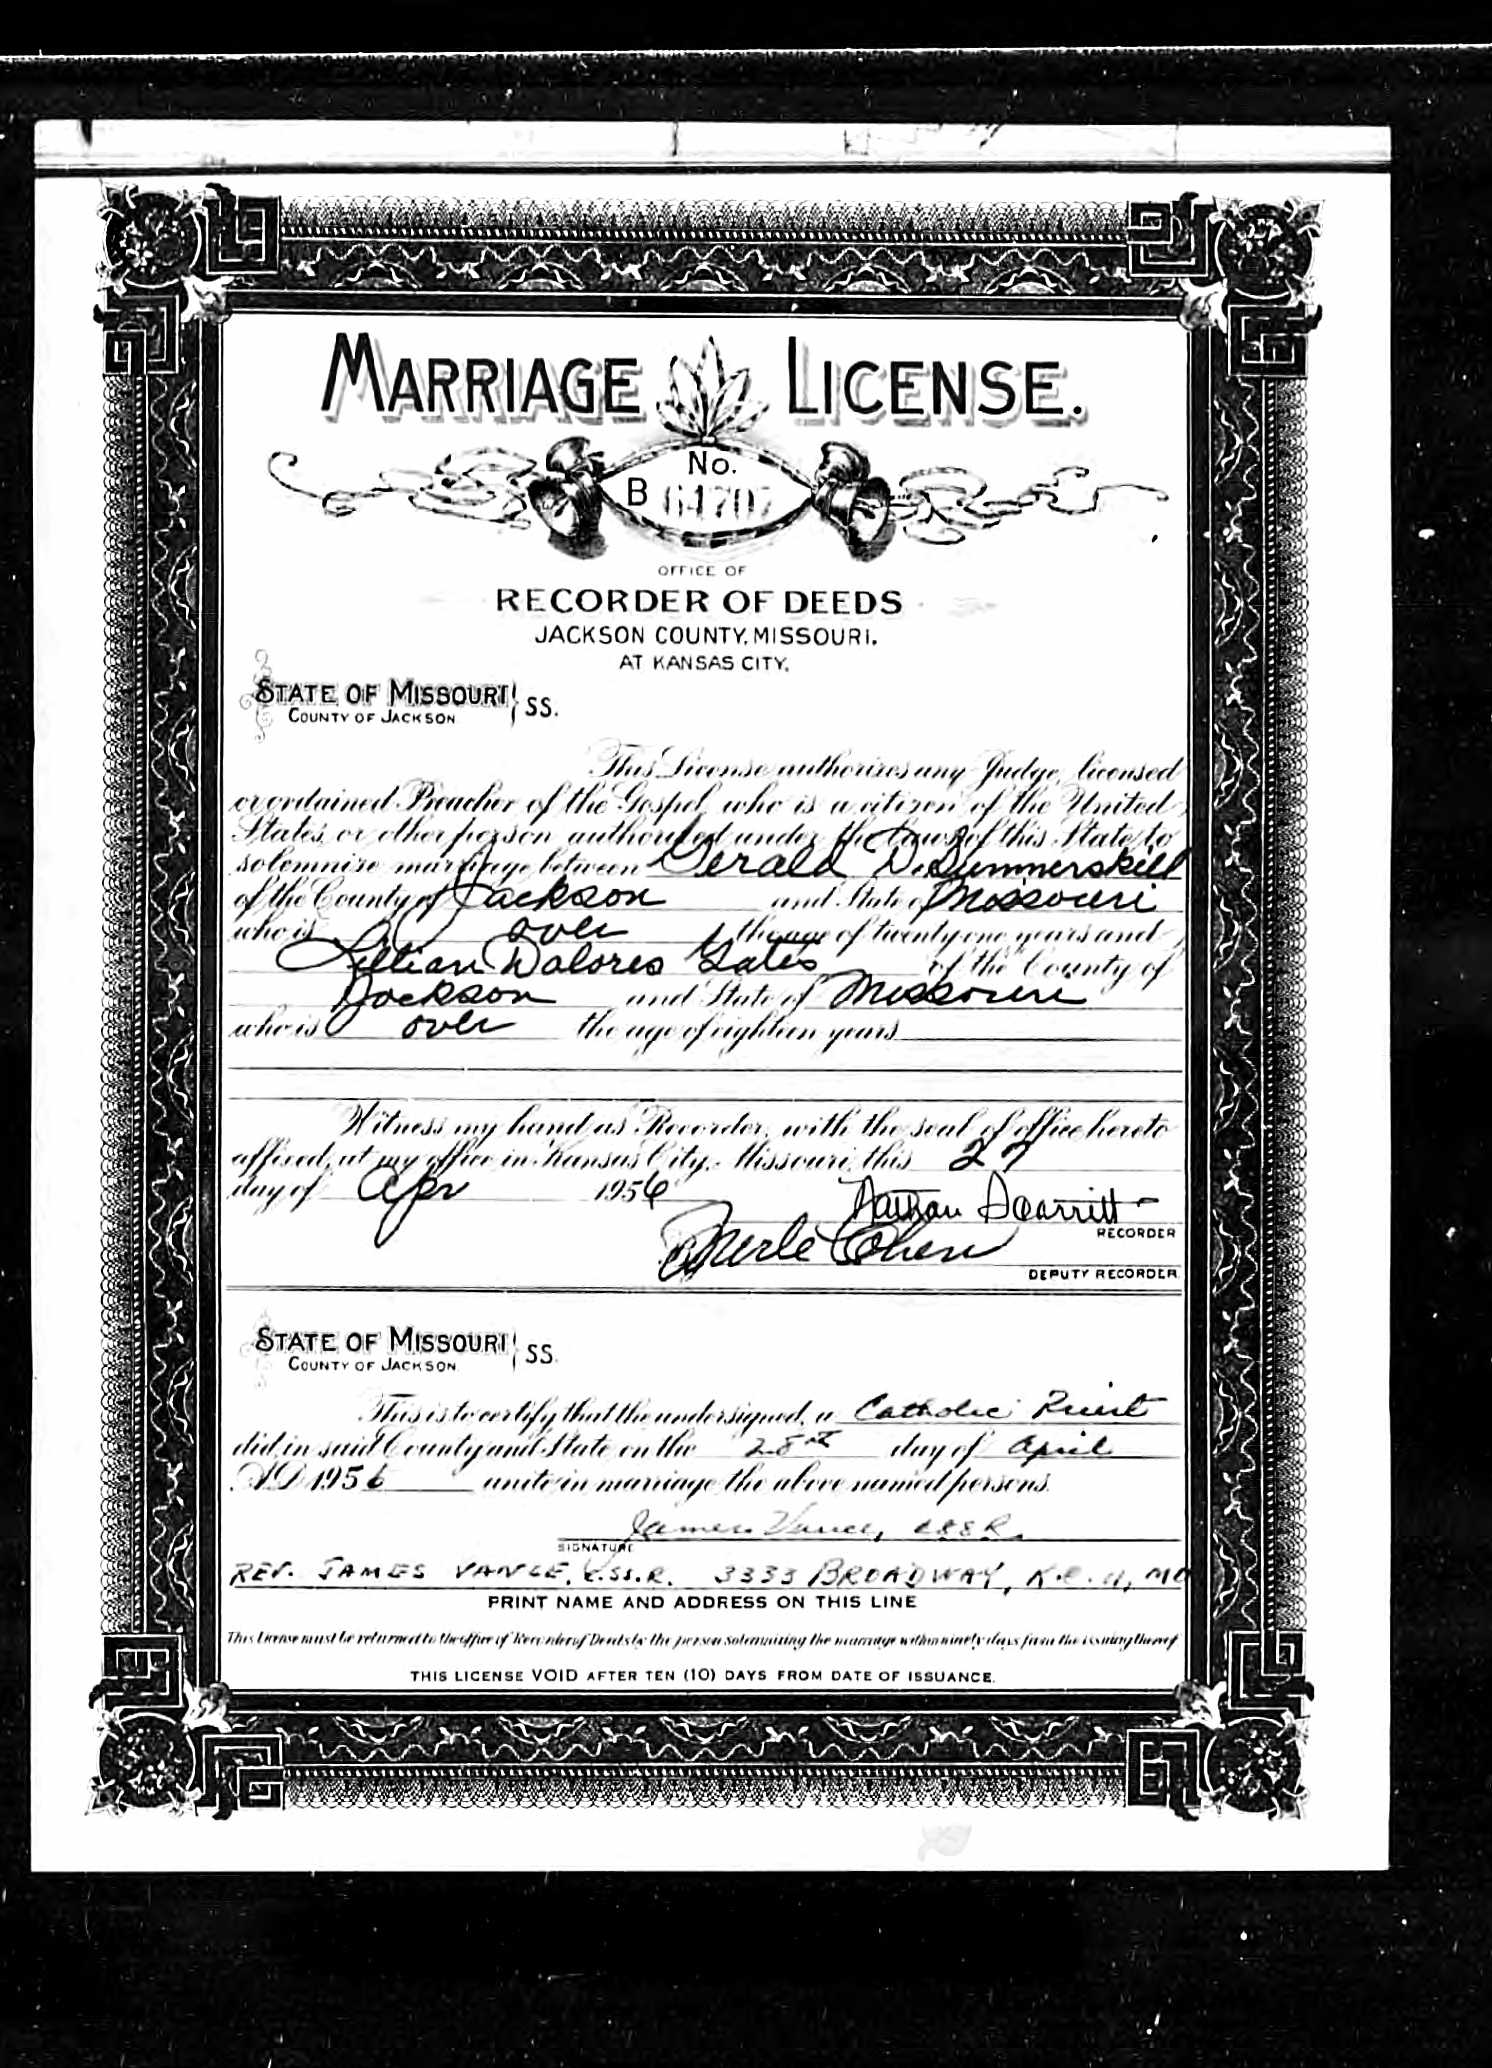 MARRIAGE LICENSE.
No.
B 64707
OFFICE OF
RECORDER OF DEEDS
JACKSON COUNTY, MISSOURI.
AT KANSAS CITY.
STATE OF MISSOURI } SS.
COUNTY OF JACKSON
This License authorizes any Judge, licensed
or ordained Preacher of the Gospel, who is a citizen of the United
States, or other person authorized under the laws of this State to
solemnize marriage between Gerald D. Summerskill
of the County of Jackson and State of Missouri
who is over the age of twenty one years and
Lillian Dalores Gates of the County of
Jackson and State of Missouri
who is over the age of eighteen years
Witness my hand as Recorder, with the seal of office hereto
affixed, at my office in Kansas City, Missouri, this 27
day of Apr 1956
Nathan Scarritt
RECORDER
By Merle Cohen
DEPUTY RECORDER
STATE OF MISSOURI } SS.
COUNTY OF JACKSON
This is to certify that the undersigned, a Catholic Priest
did, in said County and State on the 28th day of April
A D 1956 unite in marriage the above named persons.
James Vance, CSSR.
SIGNATURE
REV. JAMES VANCE, C.SS.R. 3333 BROADWAY, K.C. 11, MO
PRINT NAME AND ADDRESS ON THIS LINE
This License must be returned to the office of Recorder of Deeds by the person solemnizing the marriage within ninety days from the issuing thereof
THIS LICENSE VOID AFTER TEN (10) DAYS FROM DATE OF ISSUANCE.